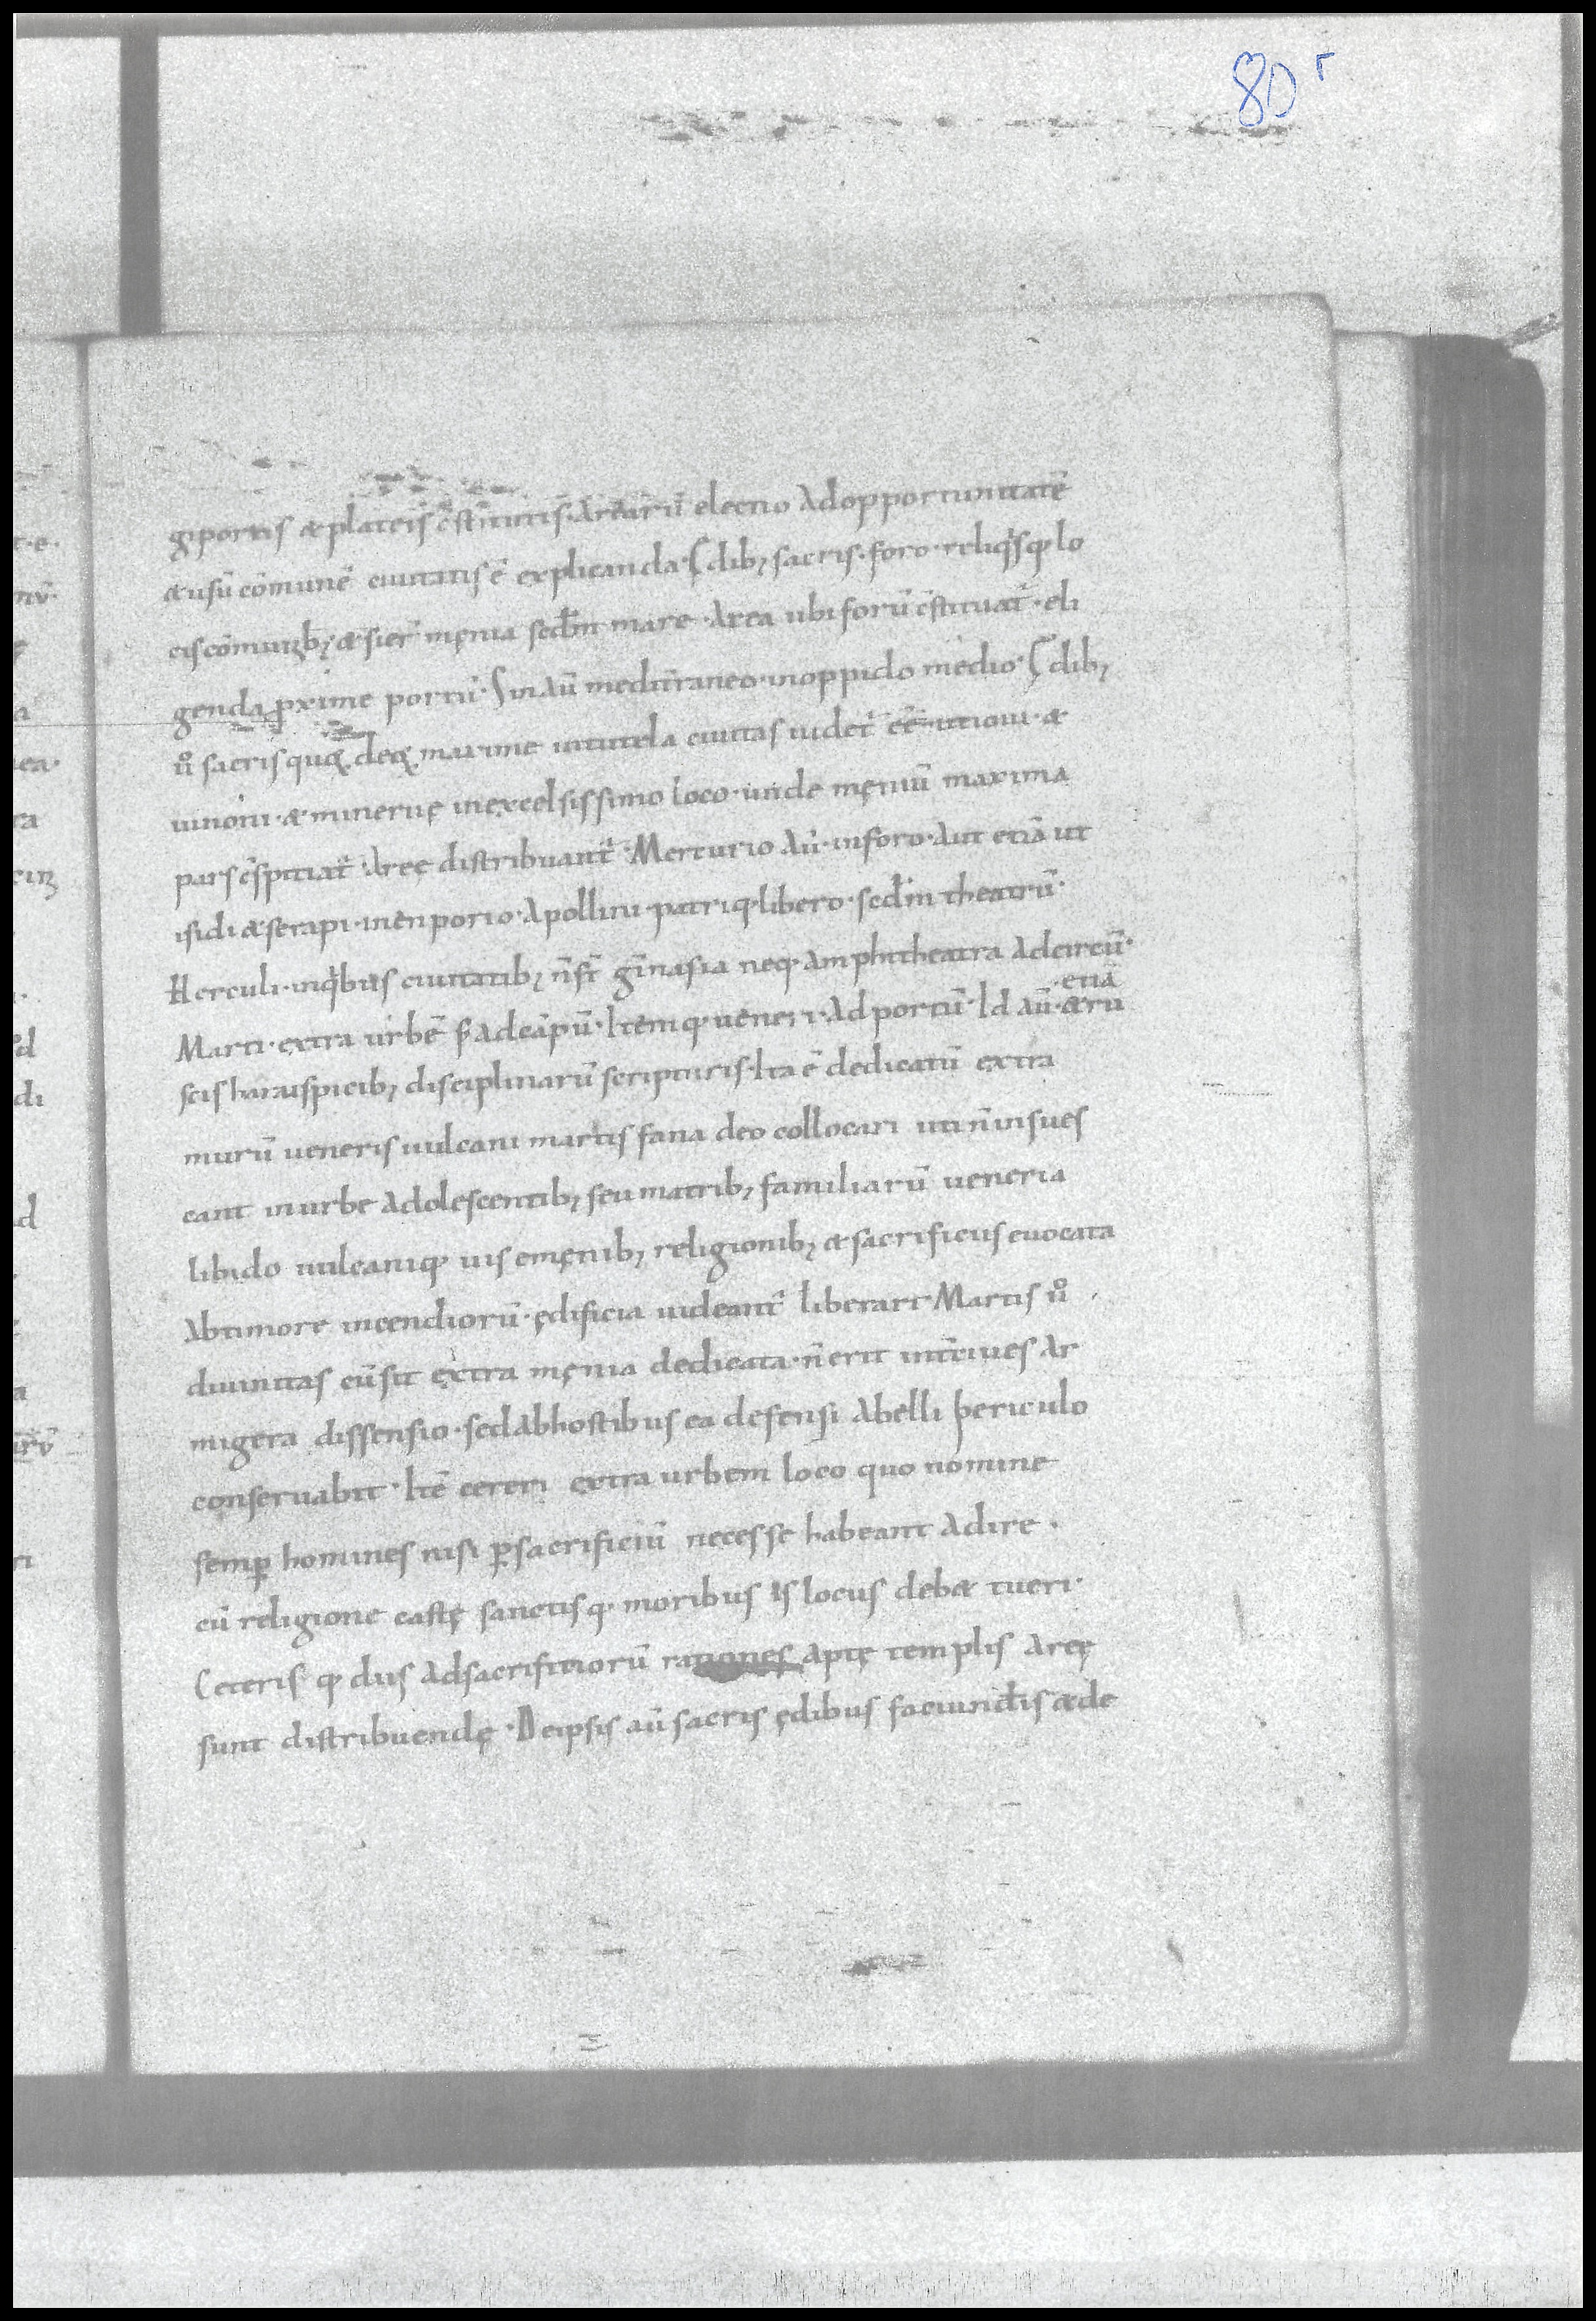 80 r
giportis & plateis c̄stitutis. Arearū electio Adopportunitatē
& usū cōmunē ciuitatis ē explicanda. Ędib; sacris. foro. reliqsq. lo
cis cōmunib; & sier̄ męnia secdm mare. Area ubi forū c̄stituat̄. eli
genda ꝓxime portū. Sin aū medit̄raneo. inoppido medio. Ędib;
ū sacris quoꝝ deoꝝ maxime intutela ciuitas uidet̄ eē. ut ioui. &
iunoni. & mineruę inexcelsissimo loco. unde męniū maxima
pars c̄spitiat̄ Areę distribuant̄. Mercurio Aū. inforo. Aut etiā ut
isidi & serapi. inenporio. Apollini. patriq. libero. secdm theatrū.
Herculi. inqbus ciuitatib; n̄st̄ gīnasia neq. Amphitheatra Adcircū.
etiā
Marti. extra urbē s; Adcāpū. Itemq. ueneri. Ad portū. Id Aū. &ru
scis haruspicib; disciplinarū scripturis. Ita ē dedicatū extra
murū ueneris uulcani martis fana deo collocari uti n̄ insues
cant in urbe Adolescentib; seu matrib; familiarū ueneria
libido uulcaniq. uis emęnib; religionib; & sacrificiis euocata
Abtimore incendiorū. ędificia uideant̄ liberari Martis ū
diuinitas cū sit extra męnia dedicata. n̄ erit int̄ciues Ar
migera dissensio. sed Abhostibus ea defensi Abelli periculo
conseruabit. Itē cereri extra urbem loco quo nomine
semꝑ homines nisi ꝑsacrificiū necesse habeant Adire.
cū religione castę sanctisq. moribus is locus deb& tueri.
Ceteris q. diis Adsacrifitiorū rationes Aptę templis Areę
sunt distribuendę. Deipsis aū sacris ędibus faciundis & de